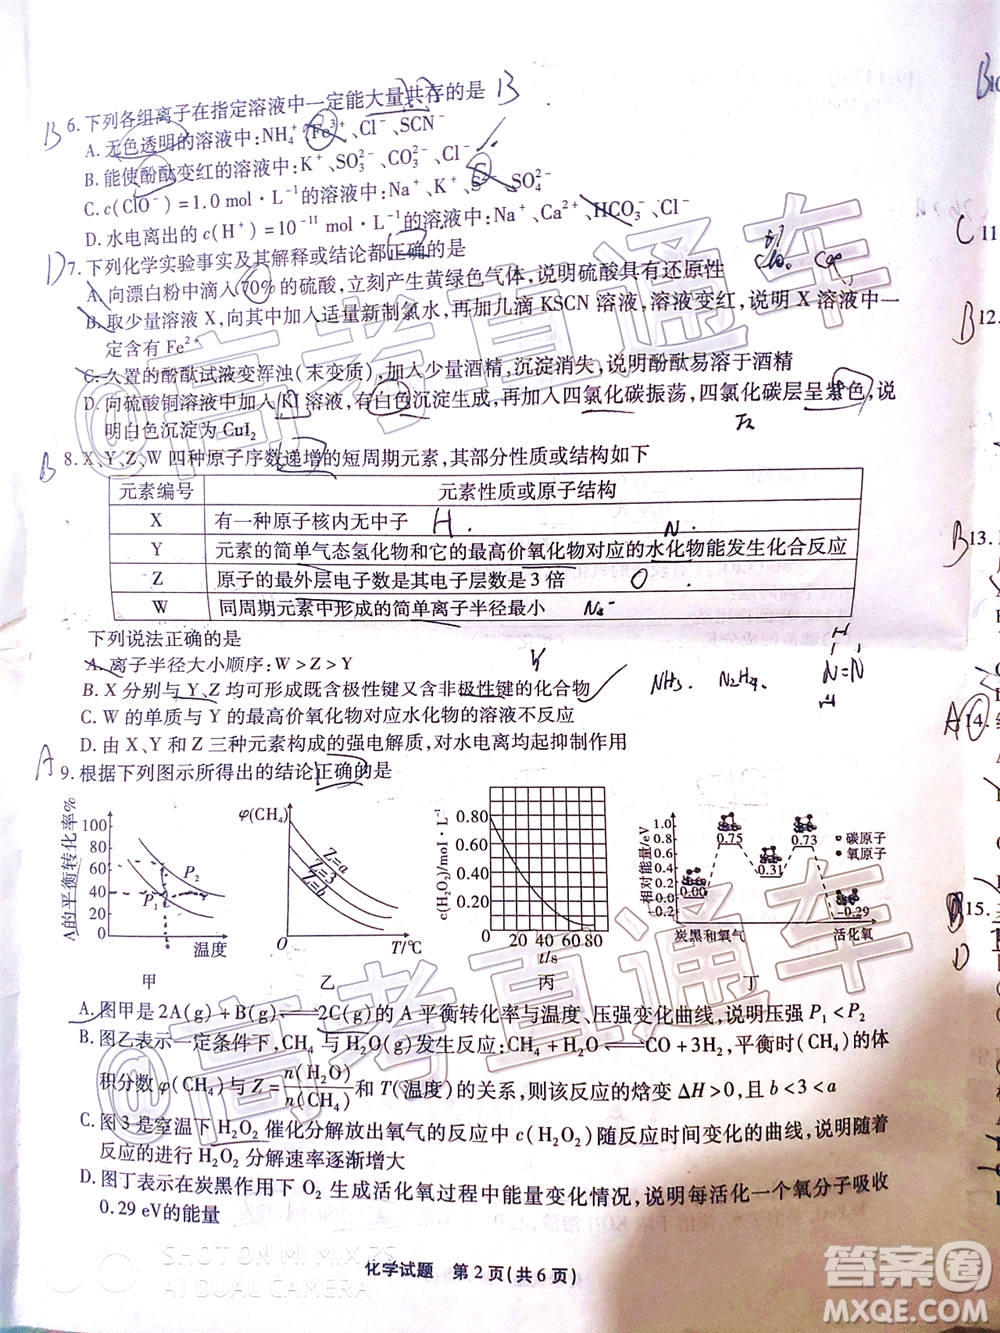 B 6.下列各组离子在指定溶液中一定能大量共存的是 B
A.无色透明的溶液中:NH₄⁺、Fe³⁺、Cl⁻、SCN⁻
B.能使酚酞变红的溶液中:K⁺、SO₃²⁻、CO₃²⁻、Cl⁻
C.c(ClO⁻)=1.0 mol·L⁻¹的溶液中:Na⁺、K⁺、S²⁻、SO₄²⁻
D.水电离出的 c(H⁺)=10⁻¹¹ mol·L⁻¹的溶液中:Na⁺、Ca²⁺、HCO₃⁻、Cl⁻
D 7.下列化学实验事实及其解释或结论都正确的是
A.向漂白粉中滴入70%的硫酸,立刻产生黄绿色气体,说明硫酸具有还原性
B.取少量溶液 X,向其中加入适量新制氯水,再加几滴 KSCN 溶液,溶液变红,说明 X 溶液中一
定含有 Fe²⁺
C.久置的酚酞试液变浑浊(末变质),加少量酒精,沉淀消失,说明酚酞易溶于酒精
D.向硫酸铜溶液中加入 KI 溶液,有白色沉淀生成,再加入四氯化碳振荡,四氯化碳层呈紫色,说
明白色沉淀为 CuI₂
B 8.X、Y、Z、W 四种原子序数递增的短周期元素,其部分性质或结构如下
元素编号 元素性质或原子结构
X 有一种原子核内无中子 H N
Y 元素的简单气态氢化物和它的最高价氧化物对应的水化物能发生化合反应
Z 原子的最外层电子数是其电子层数是 3 倍 O
W 同周期元素中形成的简单离子半径最小
下列说法正确的是
A.离子半径大小顺序:W>Z>Y
B.X 分别与 Y、Z 均可形成既含极性键又含非极性键的化合物 NH₃. N₂H₄. N=N
C.W 的单质与 Y 的最高价氧化物对应水化物的溶液不反应
D.由 X、Y 和 Z 三种元素构成的强电解质,对水电离均起抑制作用
A 9.根据下列图示所得出的结论正确的是
A的平衡转化率% 100 80 60 40 20 0 P₁ P₂ 温度
φ(CH₄) Z=a Z=3 Z=b O T/℃
c(H₂O₂)/mol·L⁻¹ 0.80 0.60 0.40 0.20 0 20 40 60 80 t/s
相对能量/eV 1.0 0.8 0.6 0.4 0.2 0.0 -0.2 0.00 0.75 0.31 0.73 -0.29 碳原子 氧原子 炭黑和氧气 活化氧
甲 乙 丙 丁
A.图甲是 2A(g)+B(g)⇌2C(g)的 A 平衡转化率与温度、压强变化曲线,说明压强 P₁<P₂
B.图乙表示一定条件下,CH₄ 与 H₂O(g)发生反应:CH₄+H₂O⇌CO+3H₂,平衡时(CH₄)的体
积分数 φ(CH₄)与 Z=n(H₂O)/n(CH₄) 和 T(温度)的关系,则该反应的焓变 ΔH>0,且 b<3<a
C.图 3 是室温下 H₂O₂ 催化分解放出氧气的反应中 c(H₂O₂)随反应时间变化的曲线,说明随着
反应的进行 H₂O₂ 分解速率逐渐增大
D.图丁表示在炭黑作用下 O₂ 生成活化氧过程中能量变化情况,说明每活化一个氧分子吸收
0.29 eV的能量
化学试题 第 2 页(共 6 页)
C 11
B 12.
B 13.
A 14.
D 15.
@高考直通车
@高考直通车
SHOT ON MI MIX 2S
AI DUAL CAMERA
答案圈
MXQE.COM